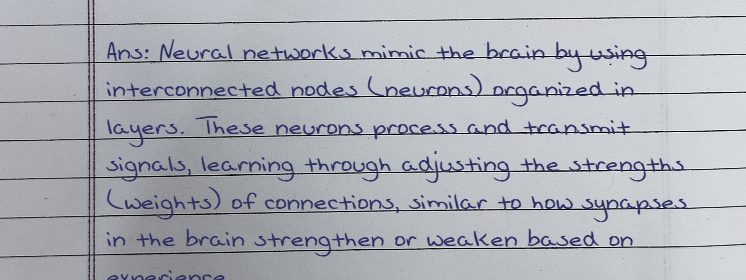 Ans: Neural networks mimic the brain by using
interconnected nodes (neurons) organized in
layers. These neurons process and transmit
signals, learning through adjusting the strengths
(weights) of connections, similar to how synapses
in the brain strengthen or weaken based on
experience